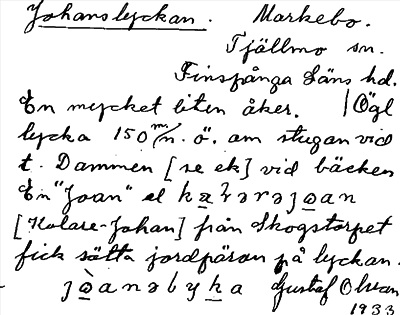 Johanslyckan. Markebo.
Tjällmo sn.
Finspånga Läns hd.
En mycket liten åker. | Ögl
lycka 150 m/n. ö. om stugan vid
t. Dammen [se ek] vid bäcken
En "Joan" el
[Kolare-Johan] från Skogstorpet
fick sätta jordpäron på lyckan.
joanəlyka Gustaf
1933